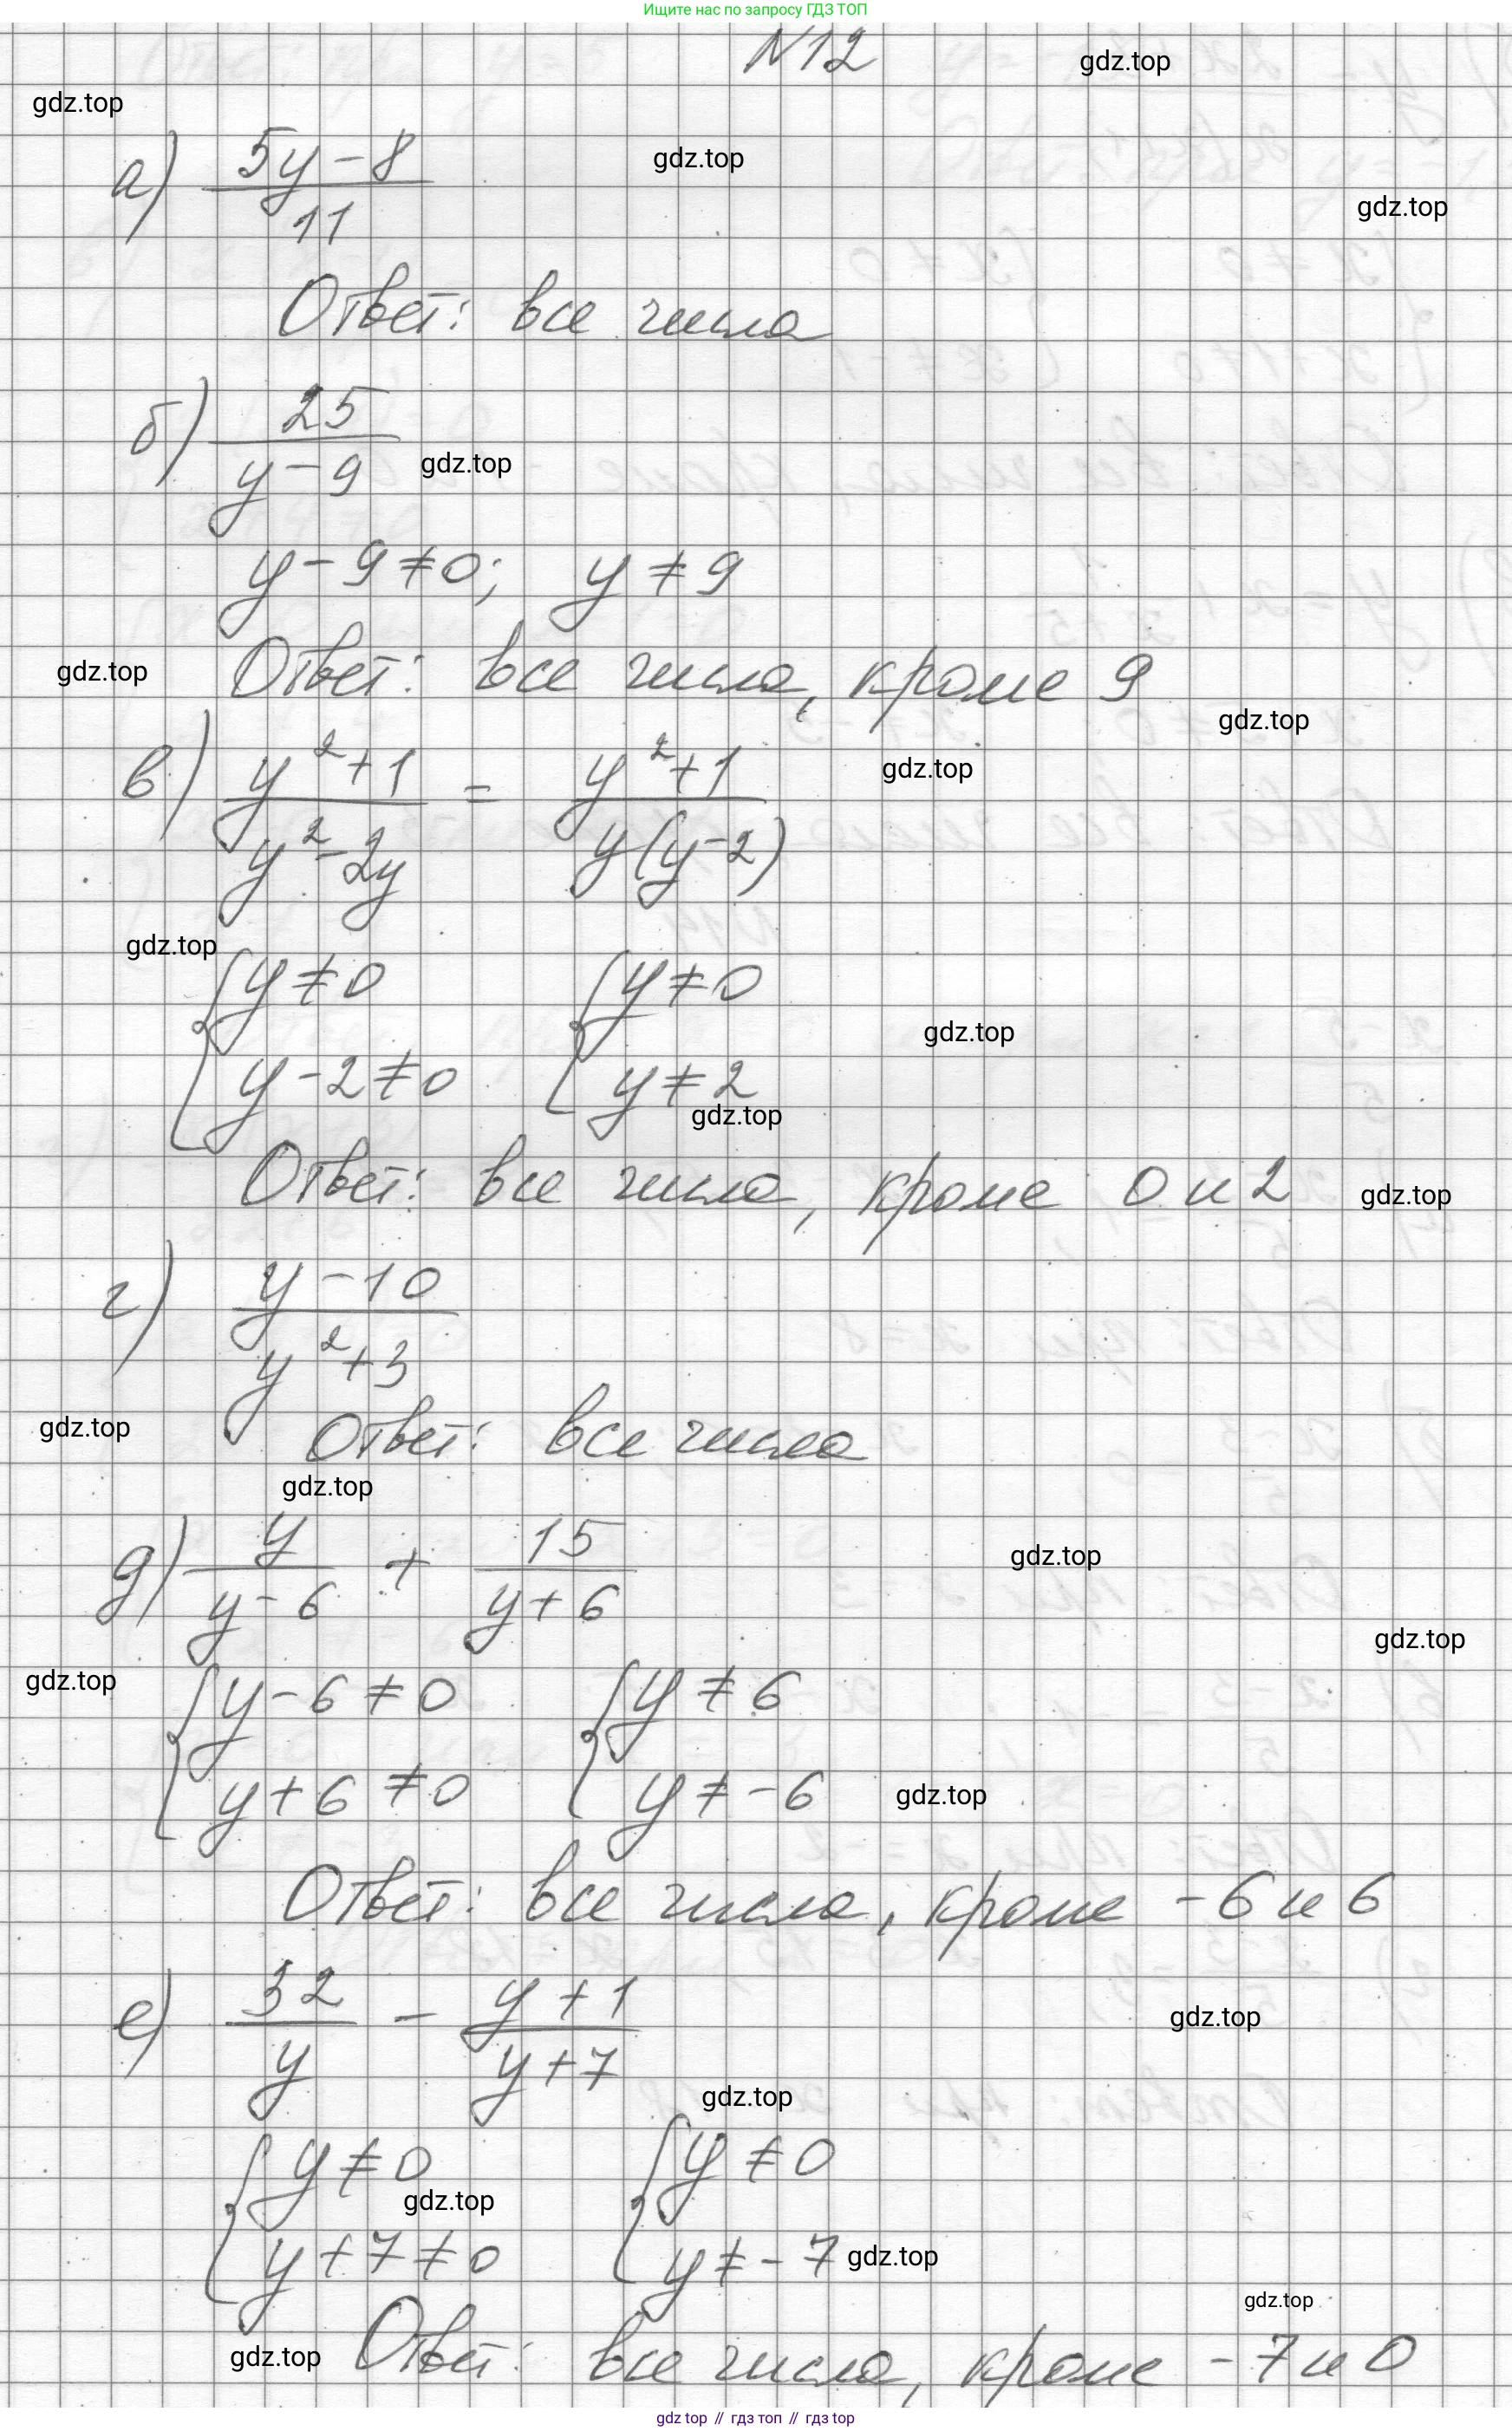 Ищите нас по запросу ГДЗ ТОП
N12
gdz.top
gdz.top
gdz.top
gdz.top
а) (5y-8)/11
Ответ: все числа
б) 25/(y-9)
gdz.top
y-9≠0; y≠9
gdz.top
Ответ: все числа, кроме 9
gdz.top
в) (y²+1)/(y²-2y) = (y²+1)/(y(y-2))
gdz.top
gdz.top
{y≠0 {y≠0
gdz.top
y-2≠0 y≠2
gdz.top
Ответ: все числа, кроме 0 и 2
gdz.top
г) (y-10)/(y²+3)
gdz.top
Ответ: все числа
gdz.top
д) y/(y-6) + 15/(y+6)
gdz.top
gdz.top
gdz.top
{y-6≠0 {y≠6
y+6≠0 y≠-6
gdz.top
Ответ: все числа, кроме -6 и 6
е) 32/y - (y+1)/(y+7)
gdz.top
gdz.top
{y≠0 {y≠0
gdz.top
y+7≠0 y≠-7
gdz.top
gdz.top
gdz.top
Ответ: все числа, кроме -7 и 0
gdz top // гдз топ // гдз top